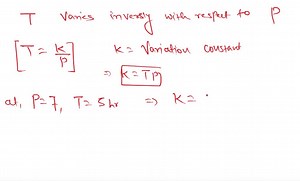 T varies inversly with respect to P
[T = k/p] k = Variation constant
⇒ k = TP
at, P=7, T=5hr ⇒ K =